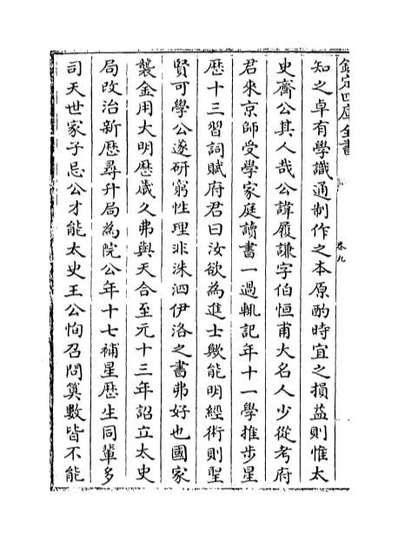 欽定四庫全書
卷九
知之卓有學識通制作之本原酌時宜之損益則惟太
史齊公其人哉公諱履謙字伯恒甫大名人少從考府
君來京師受學家庭讀書一過輒記年十一學推步星
歴十三習詞賦府君曰汝欲為進士歟能明經術則聖
賢可學公遂研窮性理非洙泗伊洛之書弗好也國家
襲金用大明歴歲久弗與天合至元十三年詔立太史
局改治新歴尋升局為院公年十七補星歴生同輩多
司天世家子忌公才能太史王公恂召問算數皆不能